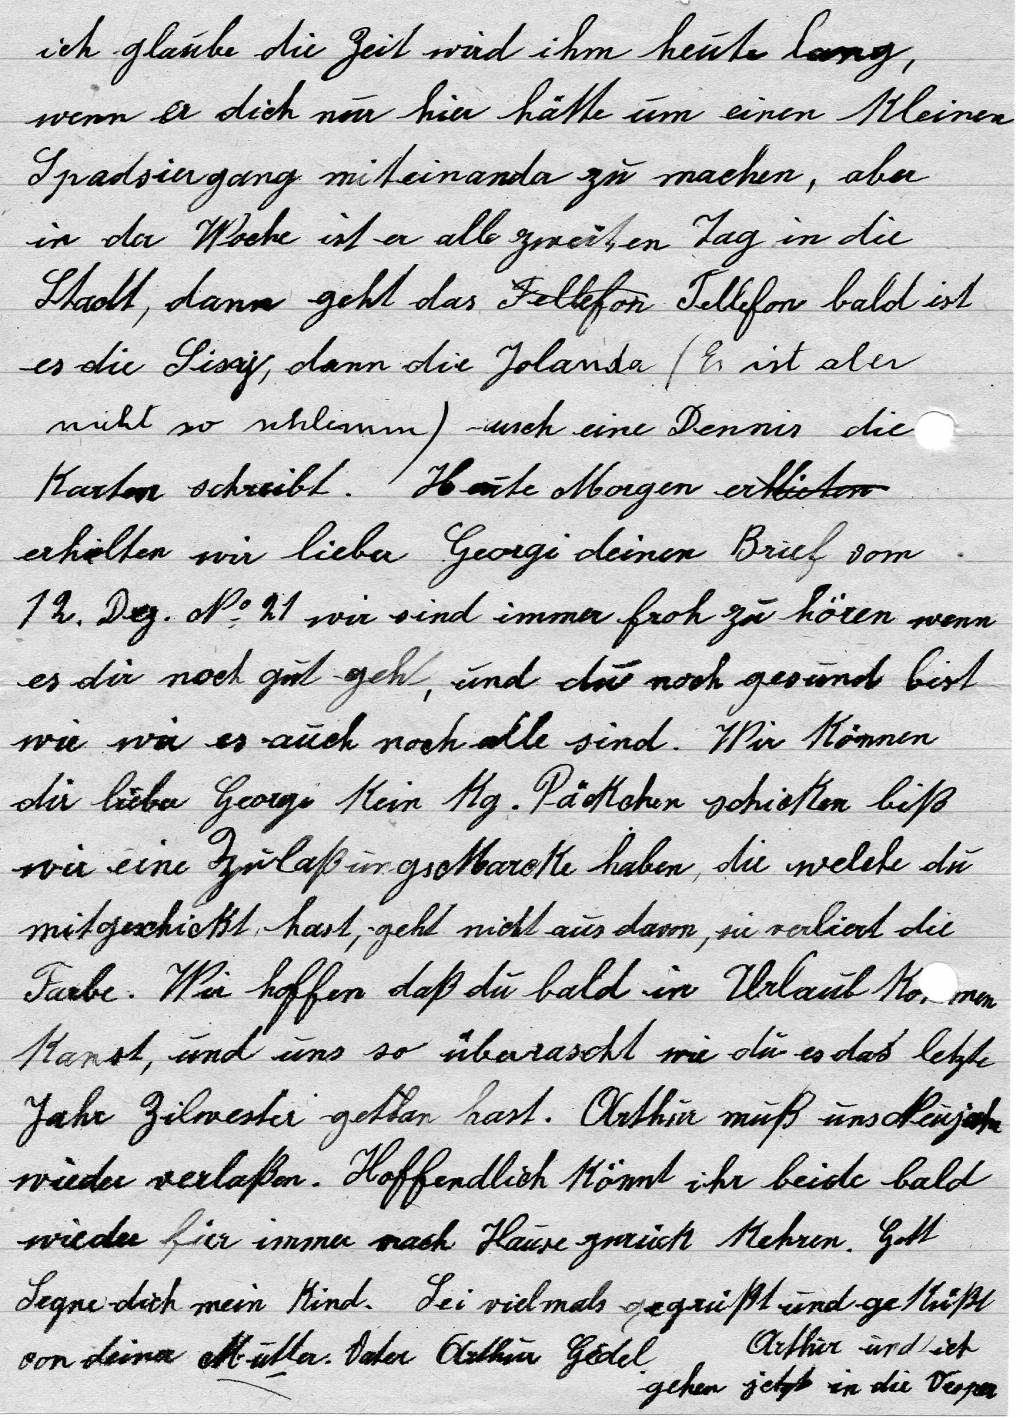 ich glaube die Zeit wird ihm heute lang,
wenn er dich nur hier hätte um einen Kleinen
Spadsiergang miteinanda zu machen, aber
in der Woche ist er alle zweiten Tag in die
Stadt, dann geht das Tellefon Tellefon bald ist
es die Sissy, dann die Jolanda (Er ist aber
nicht so schlimm) auch eine Dennis die
Karten schreibt. Heute Morgen erhielten
erhielten wir lieber Georgi deinen Brief vom
12. Dez. No. 21 wir sind immer froh zu hören wenn
es dir noch gut geht, und du noch gesund bist
wie wir es auch noch alle sind. Wir Können
dir lieber Georgi Kein Kg. Päckchen schicken biß
wir eine ZulaßungsMarcke haben, die welche du
mitgeschickt hast, geht nicht aus davon, sie verliert die
Farbe. Wir hoffen daß du bald in Urlaub Kommen
Kanst, und uns so überrascht wie du es das letzte
Jahr Zilvester gethan hast. Arthur muß uns Neujahr
wieder verlaßen. Hoffendlich Könnt ihr beide bald
wieder fier immer nach Hause zurück Kehren. Gott
Segne dich mein Kind. Sei vielmals gegrüßt und geKüßt
von deiner Mutter. Vater Arthur Gedel
Arthur und ich
gehen jetzt in die Vesper